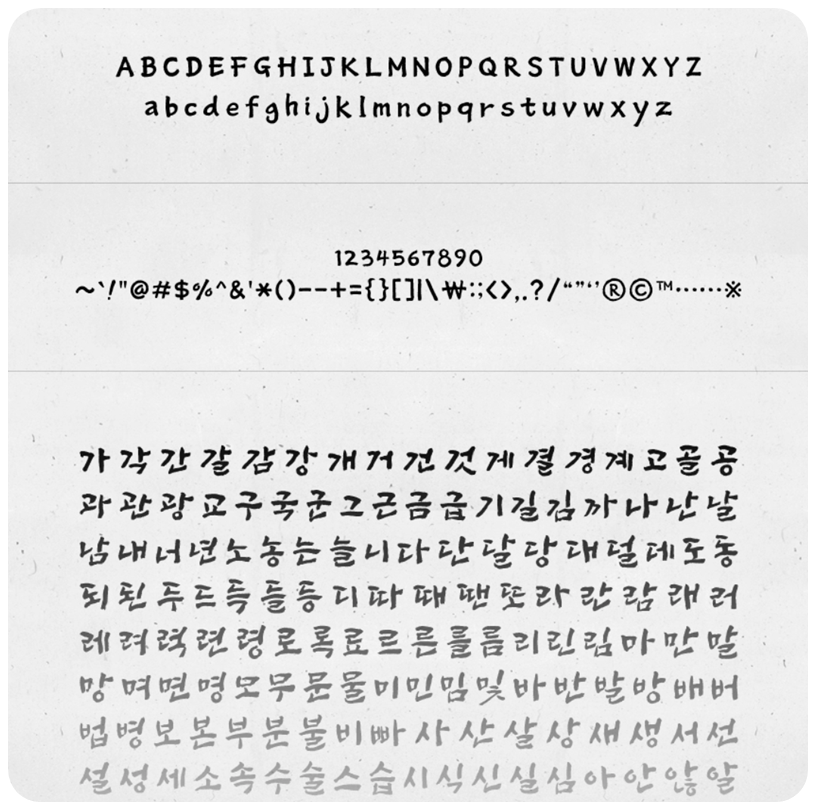 A B C D E F G H I J K L M N O P Q R S T U V W X Y Z
a b c d e f g h i j k l m n o p q r s t u v w x y z
1234567890
~`!"@#$%^&'*()--+={}[]|\₩:;<>,.?/“”‘’®©™……※
가 각 간 갈 감 강 개 거 건 것 게 결 경 계 고 골 공
과 관 광 교 구 국 군 그 근 금 급 기 길 김 까 나 난 날
남 내 너 년 노 농 는 늘 니 다 단 달 당 대 덜 데 도 동
되 된 두 드 득 들 등 디 따 때 땐 또 라 란 람 래 러
레 려 력 련 령 로 록 료 르 른 를 름 리 린 림 마 만 말
망 며 면 명 모 무 문 물 미 민 밈 및 바 반 발 방 배 버
법 병 보 본 부 분 불 비 빠 사 산 살 상 새 생 서 선
설 성 세 소 속 수 술 스 습 시 식 신 실 심 아 안 않 알